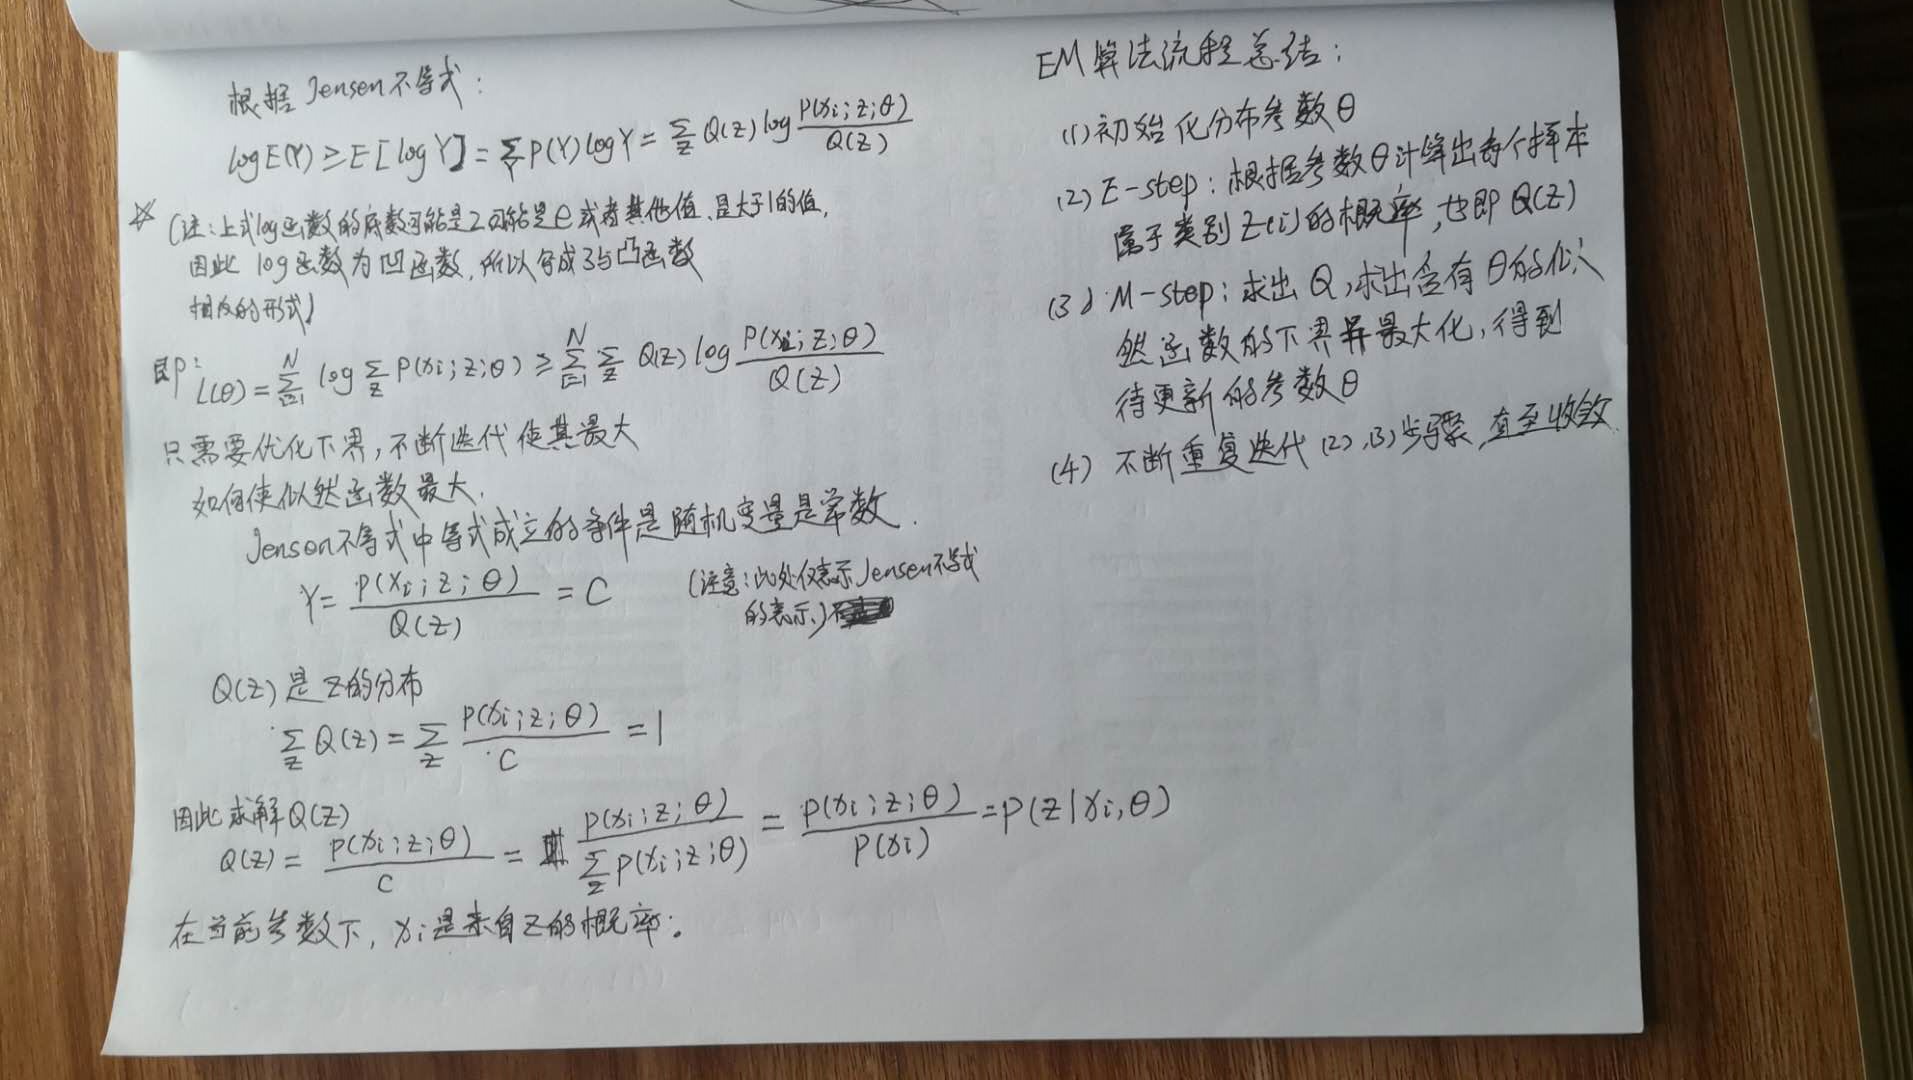 根据 Jensen 不等式:
logE(Y) ≥ E[logY] = ∑_Y P(Y) logY = ∑_z Q(z) log P(xi;z;θ)/Q(z)
☆ (注:上式log函数的底数可能是2可能是e或者其他值,是大于1的值,
因此 log函数为凹函数,所以写成了与凸函数
相反的形式)
即: L(θ) = ∑_{i=1}^N log ∑_z P(xi;z;θ) ≥ ∑_{i=1}^N ∑_z Q(z) log P(xi;z;θ)/Q(z)
只需要优化下界,不断迭代使其最大
如何使似然函数最大.
Jenson不等式中等式成立的条件是随机变量是常数.
Y = P(xi;z;θ)/Q(z) = C
(注意:此处仅表示Jensen不等式
的表示.)
Q(z) 是 z的分布
∑_z Q(z) = ∑_z P(xi;z;θ)/C = 1
因此求解Q(z)
Q(z) = P(xi;z;θ)/C = P(xi;z;θ)/∑_z P(xi;z;θ) = P(xi;z;θ)/P(xi) = P(z|xi,θ)
在当前参数下, xi是来自z的概率.
EM算法流程总结:
(1)初始化分布参数θ
(2) E-step:根据参数θ计算出每个样本
属于类别z(i)的概率,也即 Q(z)
(3) M-step:求出Q,求出含有θ的似
然函数的下界并最大化,得到
待更新的参数θ
(4) 不断重复迭代(2),(3)步骤,直至收敛.